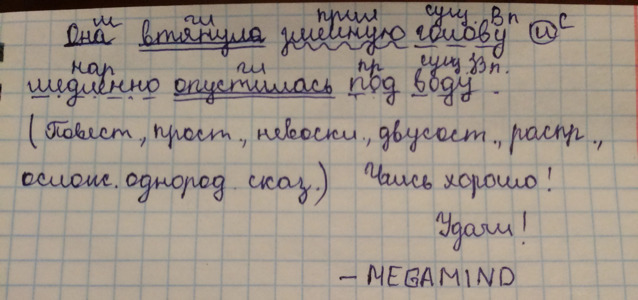 м гл прил сущ. Вп с
Она втянула змеиную голову и
нар гл пр сущ. Вп.
медленно опустилась под воду.
(Повест., прост., невоскл., двусост., распр.,
ослож. однород. сказ.) Учись хорошо!
Удачи!
– MEGAMIND